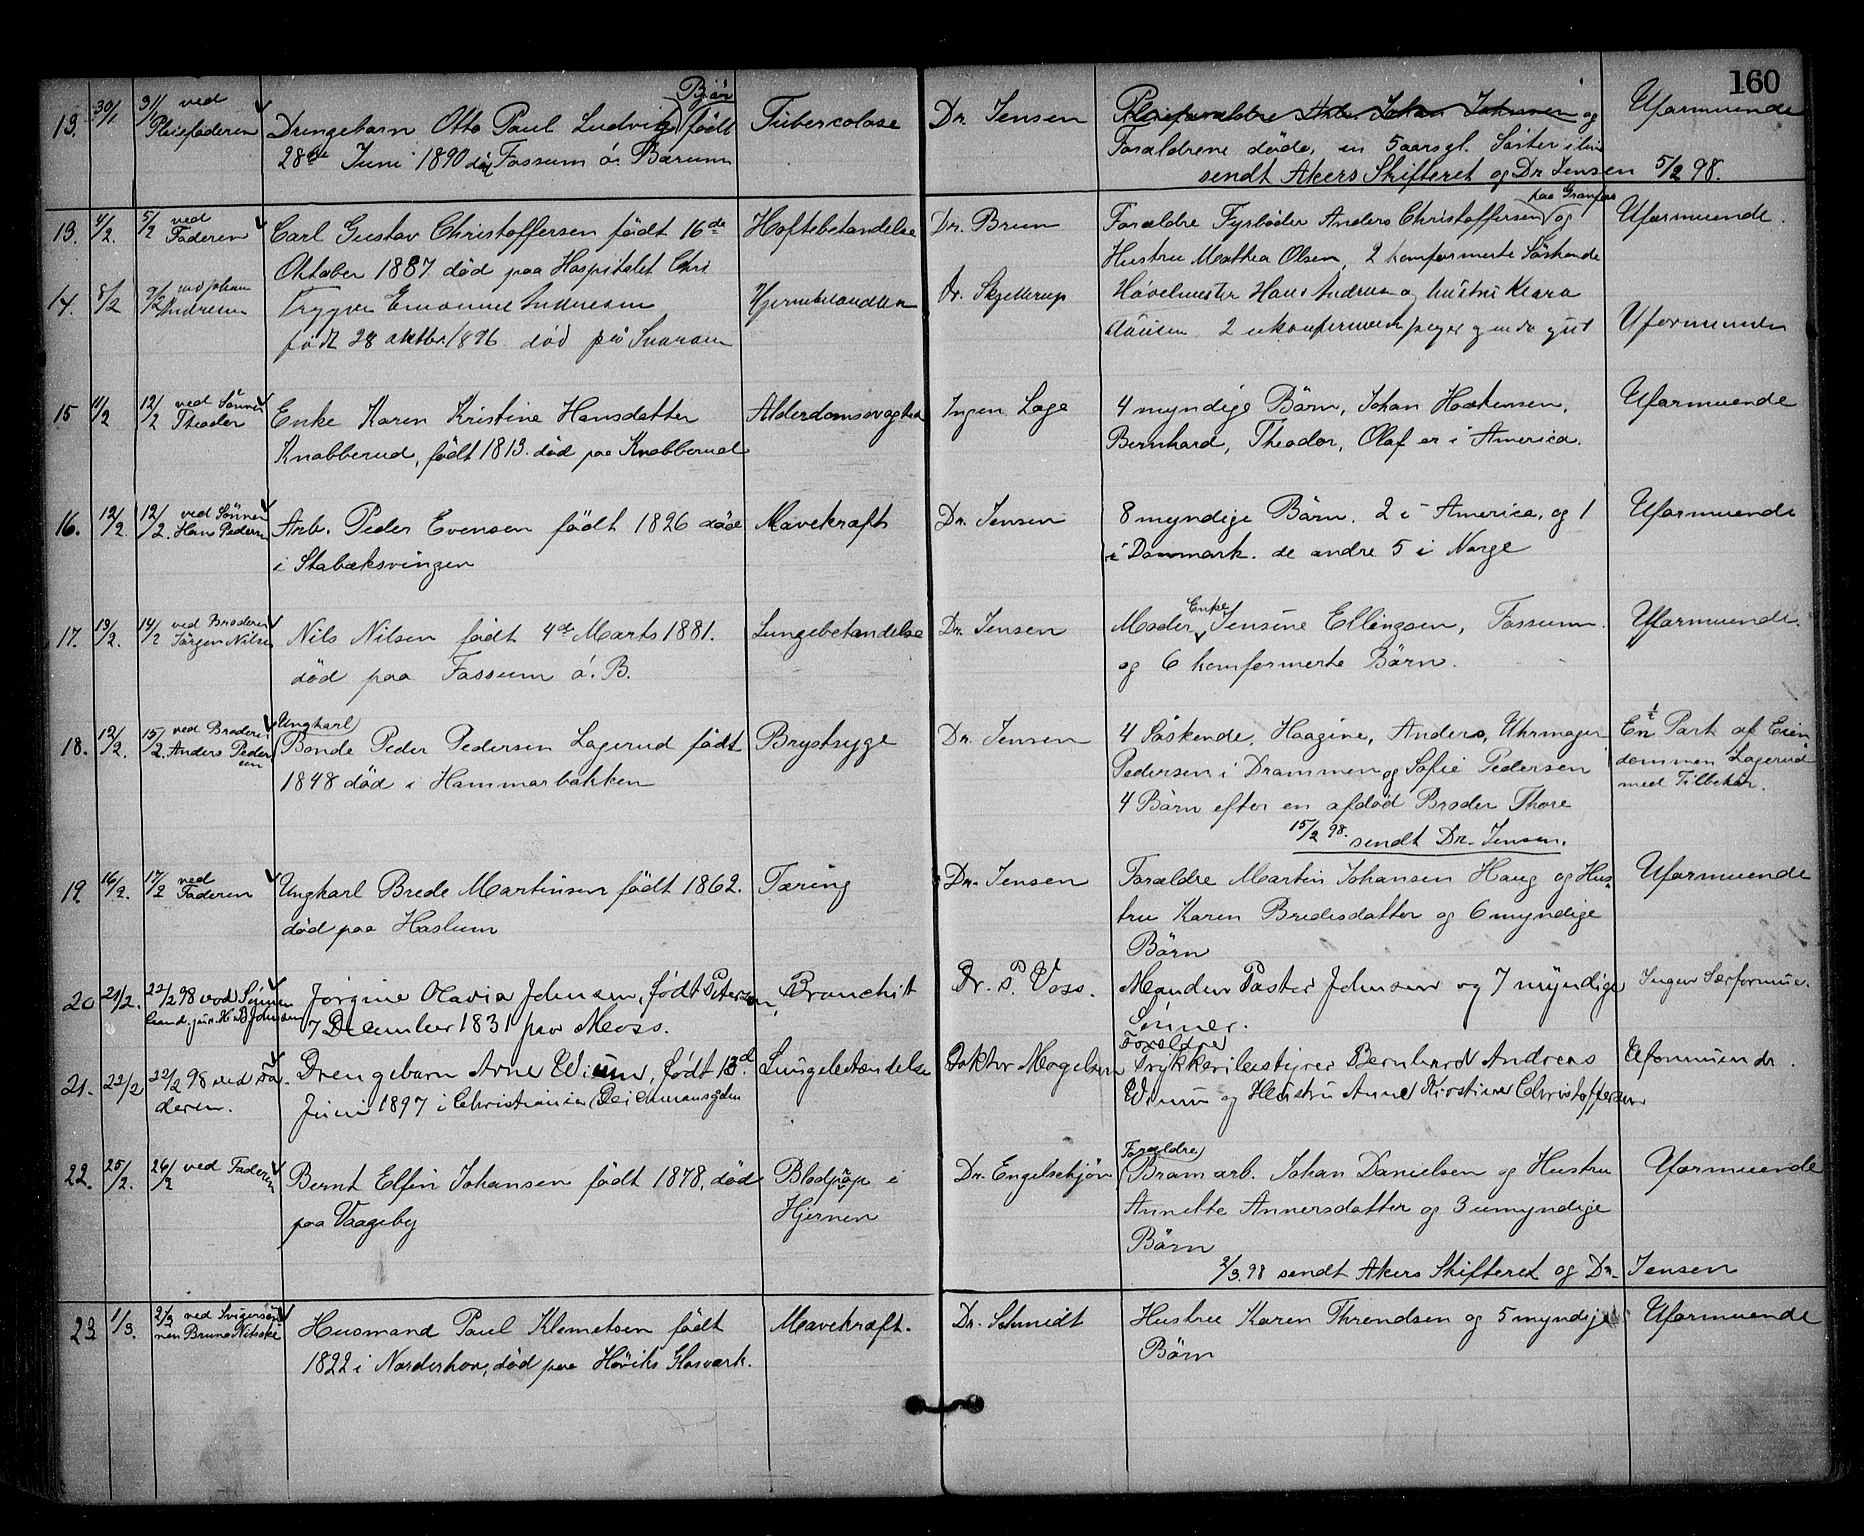 160
13. 30/1 31/1 ved Pleiefaderen Drengebarn Otto Paul Ludvig Bjør født Tubercolose Dr. Jensen Pleieforældre Arb. Johan Johnsen og Uformuende
28de Juni 1890 død Fossum ö. Bærum Forældrene døde, en 5 aars gl. Søster i live
sendt Akers Skifteret og Dr Jensen 5/2 98.
13. 4/2. 5/2 ved Faderen Carl Gustav Christoffersen født 16de Hoftebetændelse Dr. Bruun Forældre Fyrbøder Anders Christoffersen paa Granfos og Uformuende.
Oktober 1887. død paa Hospitalet Chri Hustru Mathea Olsen, 2 komformerte Söskende
14. 8/2 9/2 ved Johan Andresen Trygve Emanuel Andresen Hjernebetændelse Dr. Skjelderup Høvelmester Hans Andresen og hustru Klara
født 28 oktbr. 1896 død på Snarøen Clausen 2 ukonfirmerte piger og en do gut Uformuende
15 11/2 12/2 ved Sönnen Theodor Enke Karen Kristine Hansdatter Alderdomssvaghed Ingen Læge 4 myndige Börn, Johan Haakensen, Uformuende
Knabberud, født 1813. død paa Knabberud Bernhard, Theodor, Olaf er i America.
16. 12/2. 12/2. ved Sönnen Hans Pedersen Arb. Peder Evensen født 1826 död Mavekræft Dr. Jensen 8 myndige Börn. 2 i America, og 1 Uformuende
i Stabæksvingen i Danmark. de andre 5 i Norge
17. 13/2. 14/2 ved Broderen Jörgen Nilsen Nils Nilsen født 4de Marts 1881. Lungebetændelse Dr. Jensen Moder Enke Jensine Ellingsen, Fossum. Uformuende.
død paa Fossum ö. B. og 6 komformerte Börn.
18. 12/2. 15/2. ved Broderen Anders Pedersen Ungkarl Bonde Peder Pedersen Lagerud født Brystsyge Dr. Jensen 4 Söskende, Haagine, Anders, Uhrmager En 1/2 Part af Eien
1848 död i Hammerbakken Pedersen i Drammen og Sofie Pedersen dommen "Lagerud"
4 Börn efter en afdød Broder Thore med Tilbehör.
15/2 98. sendt Dr. Jensen.
19. 16/2. 17/2 ved Faderen Ungkarl Brede Martinsen født 1862. Tæring Dr. Jensen Forældre Martin Johansen Haug og Hus- Uformuende
död paa Haslum tru Karen Bredesdatter og 6 myndige
Börn
20 21/2. 22/2 98 ved Sønnen Cand. jur. H. B. Johnsen Jørgine Olavia Johnsen, født Petersen, Bronchit Dr. P. Voss. Manden Pastor Johnsen og 7 myndige Ingen Særformue.
7 December 1831 paa Moss. Sønner.
21. 22/2 22/2 98 ved Faderen. Drengebarn Arne Wium, født 13d. Lungebetændelse Doktor Mogelsen Forældre Trykkeribestyrer Bernhard Andreas Uformuende.
Juni 1897 i Christiania (Deichmansgden Wium og Hustru Anne Kirstine Christoffersen
22. 25/2. 26/2 ved Faderen Bernt Elfin Johansen født 1878, död Blodprop i Dr. Engelschjøn Forældre Bramarb. Johan Danielsen og Hustru Uformuende
paa Vaageby Hjernen Annette Annersdatter og 3 umyndige
Börn
2/3.98 sendt Akers Skifteret og Dr. Jensen
23. 1/3. 2/3 ved Svigersönnen Bruno Nitske Husmand Paul Klemetsen født Mavekræft. Dr. Schmidt Hustru Karen Throndsen og 5 myndige Uformuende
1822 i Norderhov, död paa Høviks Glasværk. Börn